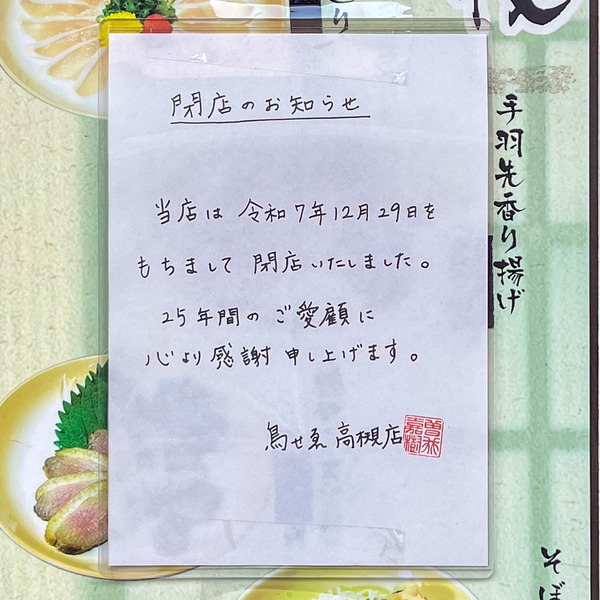 閉店のお知らせ
当店は 令和7年12月29日を
もちまして 閉店いたしました。
25年間の ご愛顧に
心より 感謝 申し上げます。
鳥せゑ 高槻店
手羽先香り揚げ